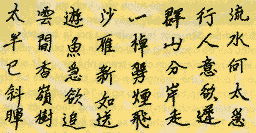 流水何太急
行人意欲遲
群山分岸走
一棹劈煙飛
沙雁新如送
遊魚忽欲追
雲間香嶺樹
太半已斜暉